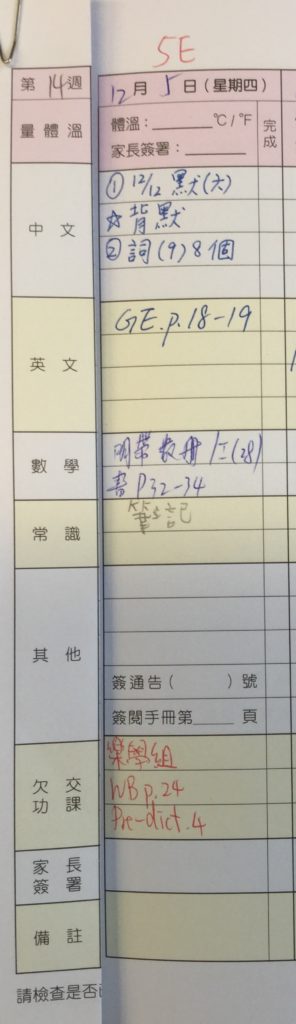 5E
第14週
12月5日(星期四)
量體溫
體溫：______°C/°F
家長簽署：______
完成
中文
① 12/12 默(六)
☆背默
② 詞(9) 8個
英文
GE.p.18-19
數學
明帶教冊
書P32-34
常識
筆記
其他
簽通告( )號
簽閱手冊第____頁
欠交功課
樂學組
WB p.24
Pre-dict.4
家長簽署
備註
請檢查是否